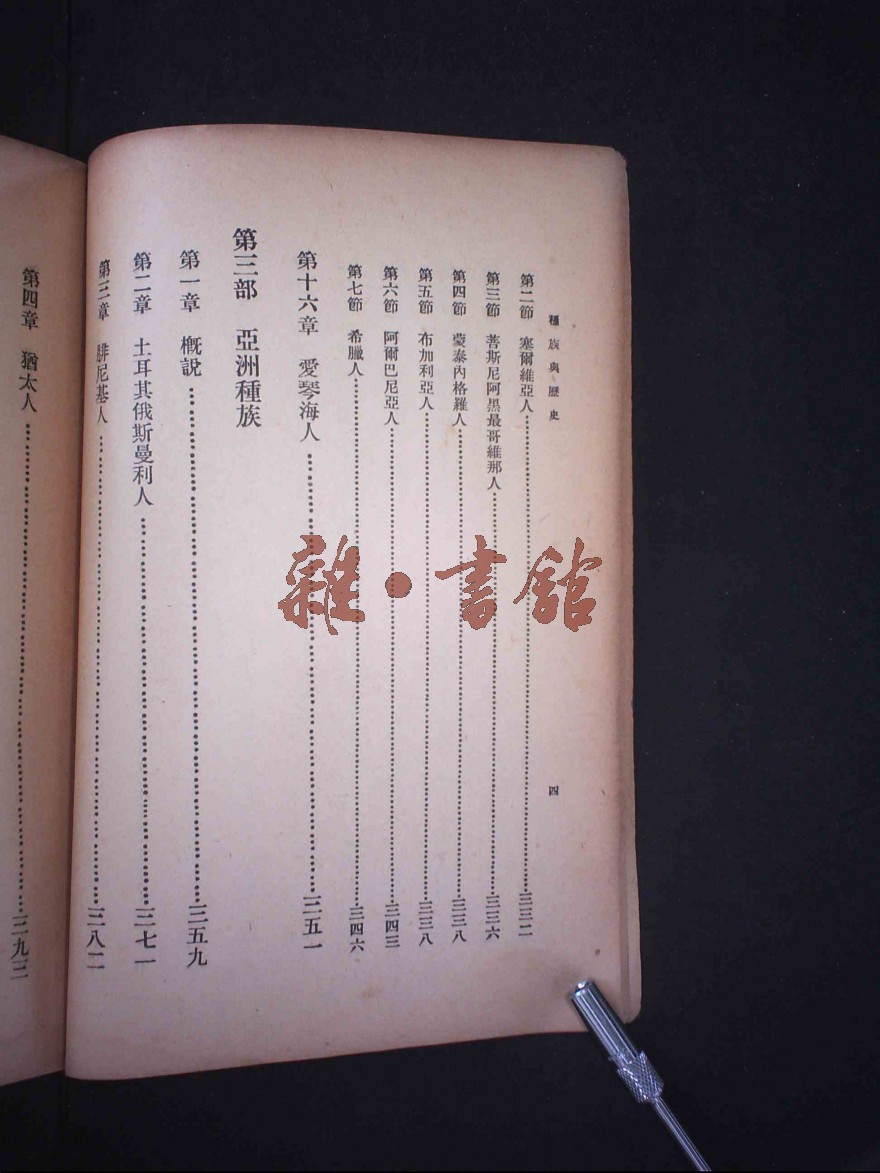 種族與歷史 四
第二節 塞爾維亞人……三三二
第三節 菩斯尼阿黑最哥維那人……三三六
第四節 蒙泰內格羅人……三三八
第五節 布加利亞人……三三八
第六節 阿爾巴尼亞人……三四三
第七節 希臘人……三四六
第十六章 愛琴海人……三五一
第三部 亞洲種族
第一章 概說……三五九
第二章 土耳其俄斯曼利人……三七一
第三章 腓尼基人……三八二
第四章 猶太人……三九三
雜·書館